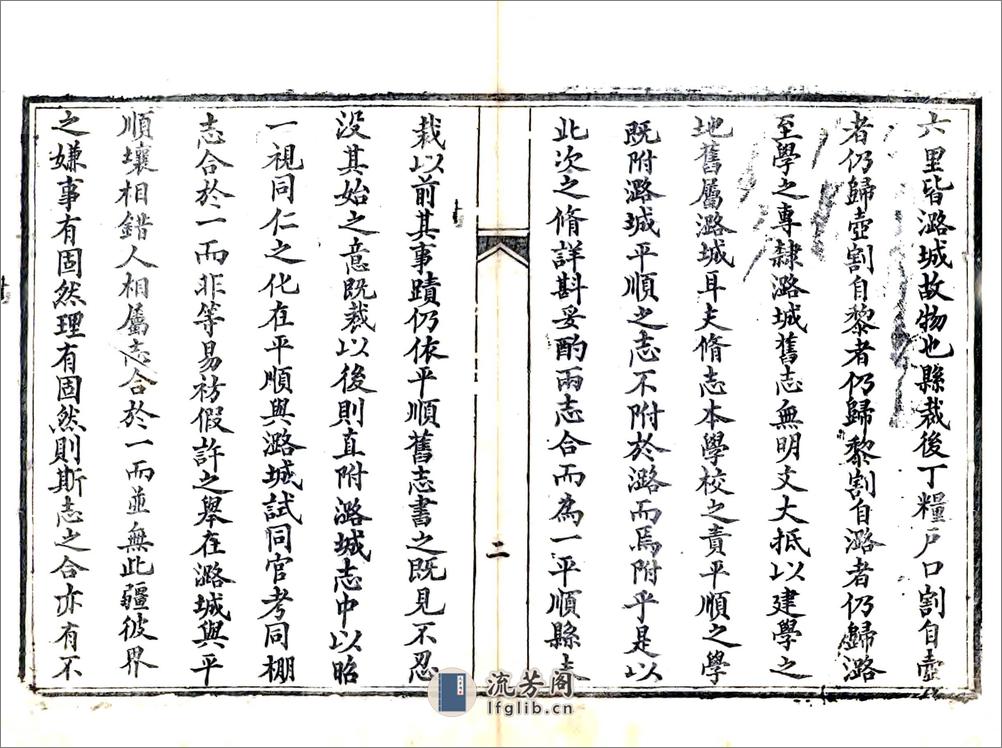 六里皆潞城故物也縣裁後丁糧戶口割自壺
者仍歸壺割自黎者仍歸黎割自潞者仍歸潞
至學之專隸潞城舊志無明文大抵以建學之
地舊屬潞城耳夫脩志本學校之責平順之學
既附潞城平順之志不附於潞而焉附乎是以
此次之脩詳斟妥酌兩志合而為一平順縣未
二
裁以前其事蹟仍依平順舊志書之既見不忍
沒其始之意既裁以後則直附潞城志中以昭
一視同仁之化在平順與潞城試同官考同棚
志合於一而非等易祊假許之舉在潞城與平
順壤相錯人相屬志合於一而並無此疆彼界
之嫌事有固然理有固然則斯志之合亦有不
流芳阁
lfglib.cn